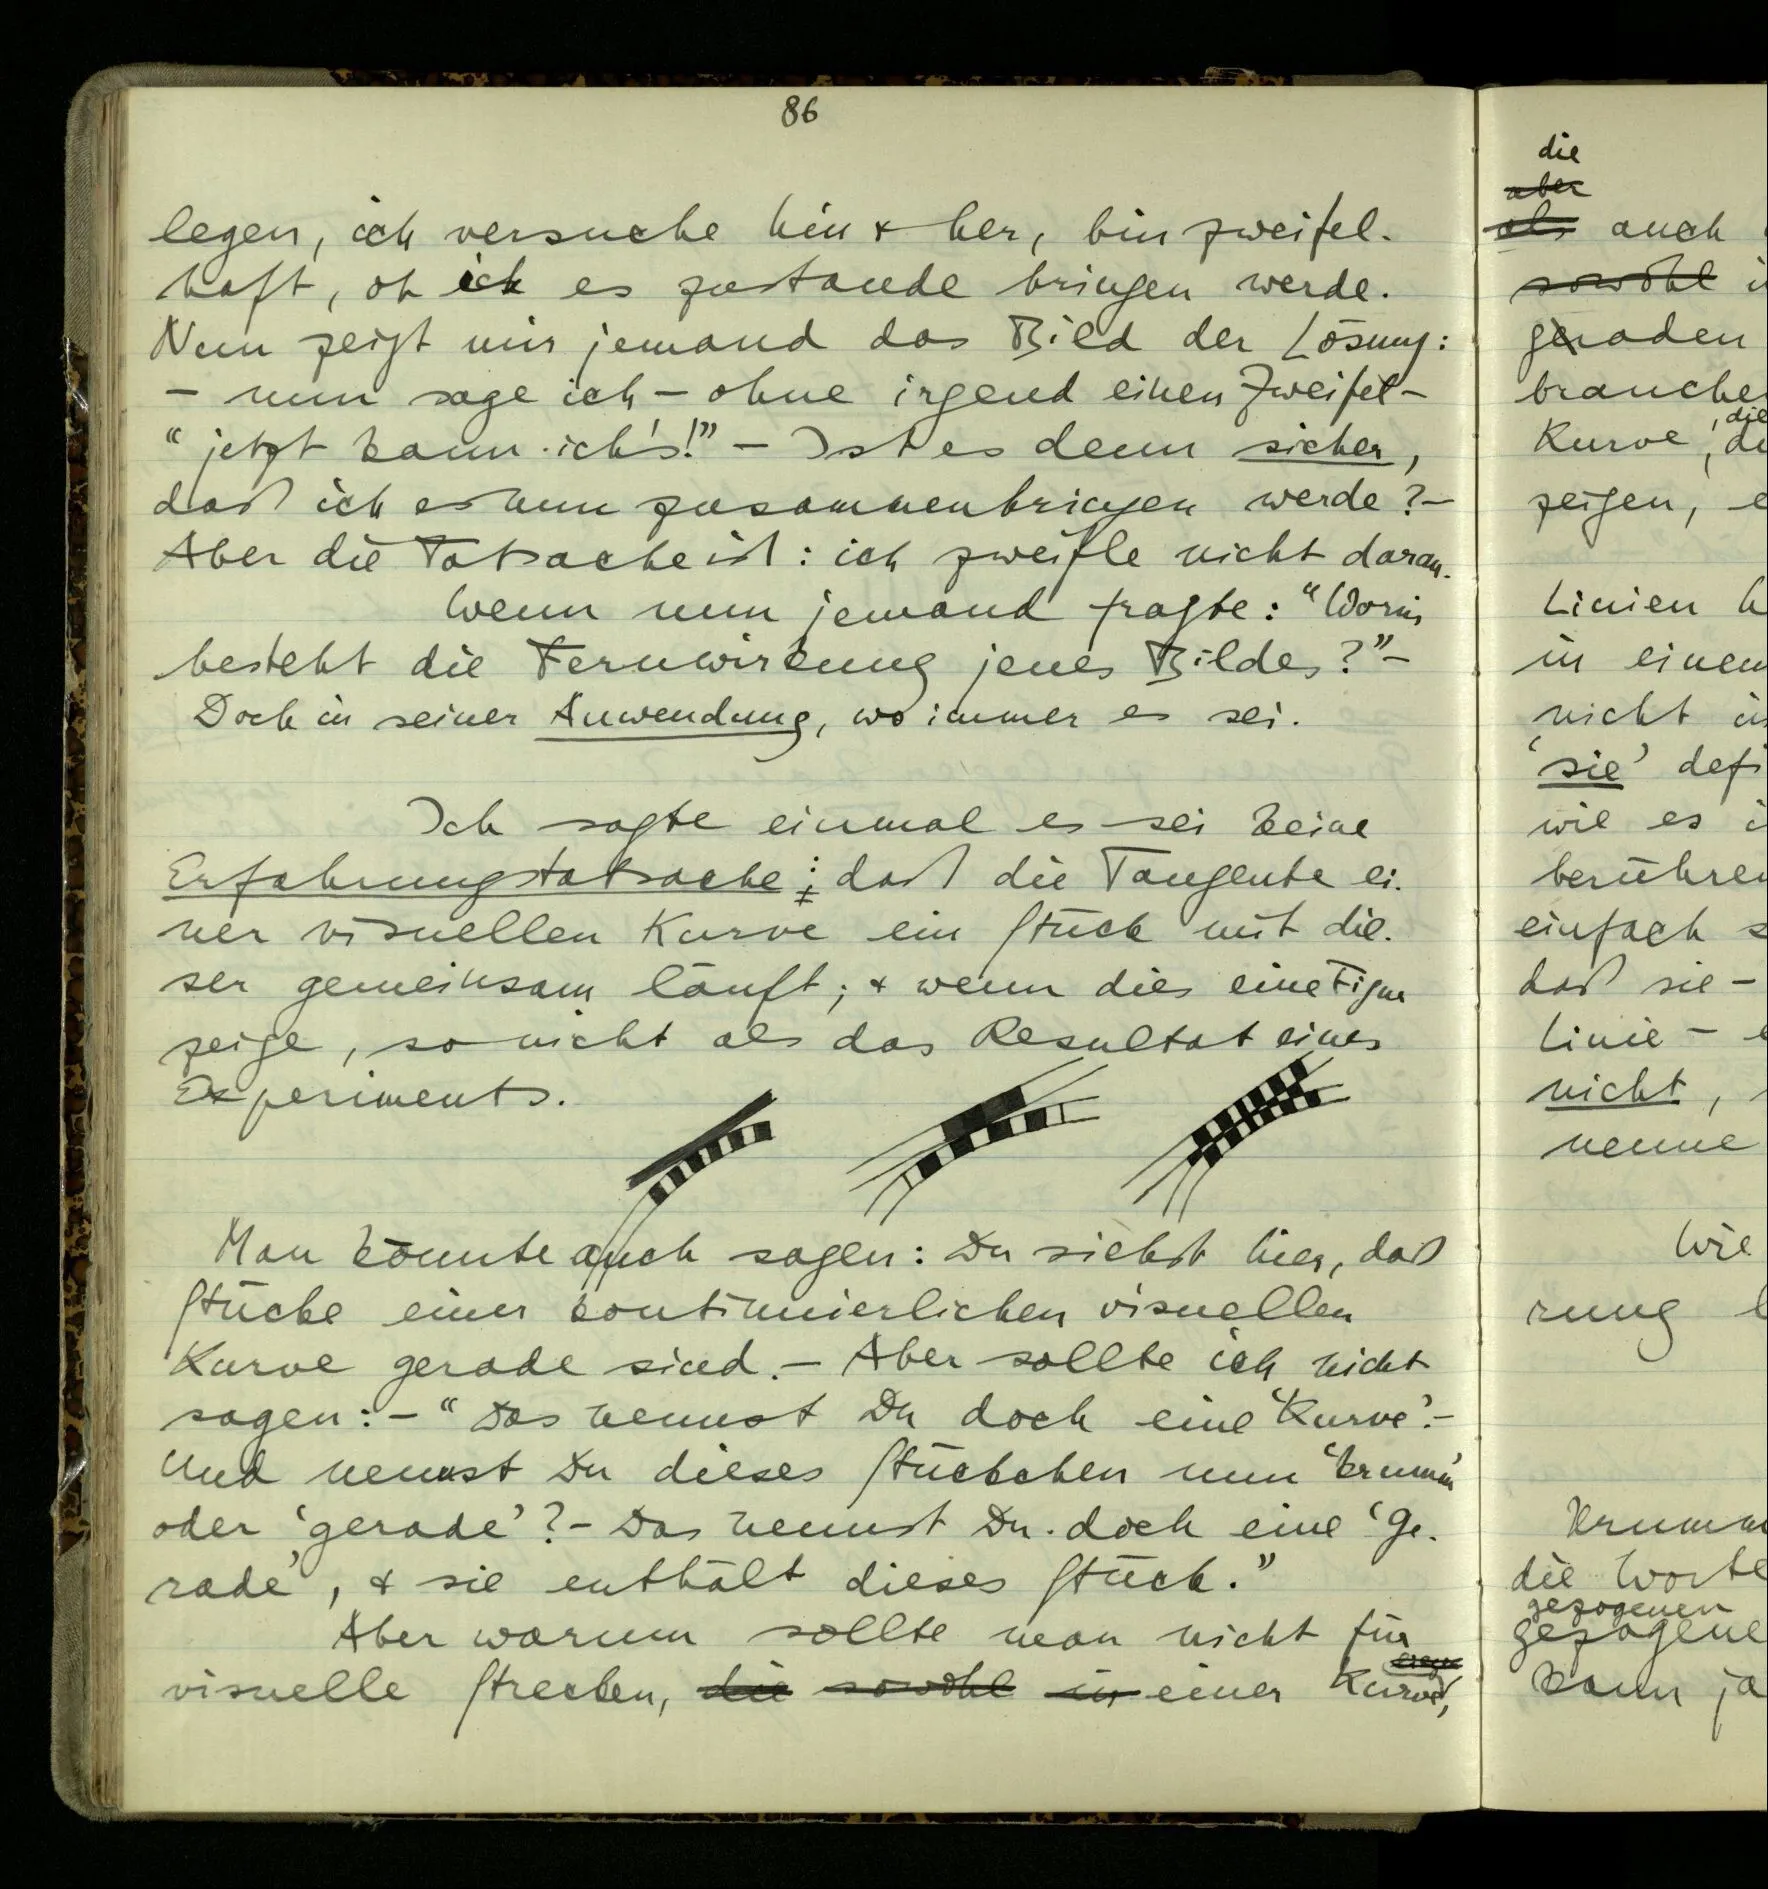 86
legen, ich versuche hin & her, bin zweifel-
haft, ob ich es zustande bringen werde.
Nun zeigt mir jemand das Bild der Lösung:
– nun sage ich – ohne irgend einen Zweifel –
“jetzt kann ich's!” – Ist es denn sicher,
daß ich es nun zusammenbringen werde? –
Aber die Tatsache ist: ich zweifle nicht daran.
Wenn nun jemand fragte: “Worin
besteht die Fernwirkung jenes Bildes?” –
Doch in seiner Anwendung, wo immer es sei.
Ich sagte einmal es sei keine
Erfahrungstatsache: daß die Tangente ei-
ner visuellen Kurve ein Stück mit die-
ser gemeinsam läuft; & wenn dies eine Figur
zeige, so nicht als das Resultat eines
Experiments.
Man könnte auch sagen: Du siehst hier, daß
Stücke einer kontinuierlichen visuellen
Kurve gerade sind. – Aber sollte ich nicht
sagen: – “Das nennst Du doch eine ‘Kurve’. –
Und nennst Du dieses Stückchen nun ‘krumm’
oder ‘gerade’? – Das nennst Du doch eine ‘Ge-
rade’, & sie enthält dieses Stück.”
Aber warum sollte man nicht für
visuelle Strecken, die sowohl in einer Kurve,
die
aber
als auch
sowohl
geraden
brauche
, die
Kurve,
zeigen,
Linien
in einem
nicht
‘sie’ defi
wie es
berühren
einfach
daß sie –
Linie –
nicht,
nenne
Wie
rung
Krumm
die Worte
gezogenen
gezogene
kann ja